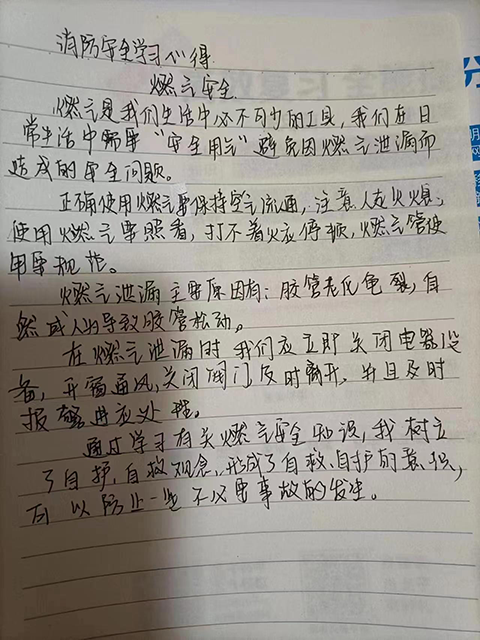 消防安全学习心得
燃气安全
燃气是我们生活中必不可少的工具，我们在日
常生活中需要“安全用气”避免因燃气泄漏而
造成的安全问题。
正确使用燃气要保持空气流通，注意人走火熄，
使用燃气要照看，打不着火应停顿，燃气管使
用要规范。
燃气泄漏主要原因有：胶管老化龟裂，自
然或人为导致胶管松动。
在燃气泄漏时我们应立即关闭电器设
备，开窗通风，关闭阀门及时离开，并且及时
报警进应处理。
通过学习有关燃气安全知识，我树立
了自护、自救观念，形成了自救、自护的意识，
可以防止一些不必要事故的发生。